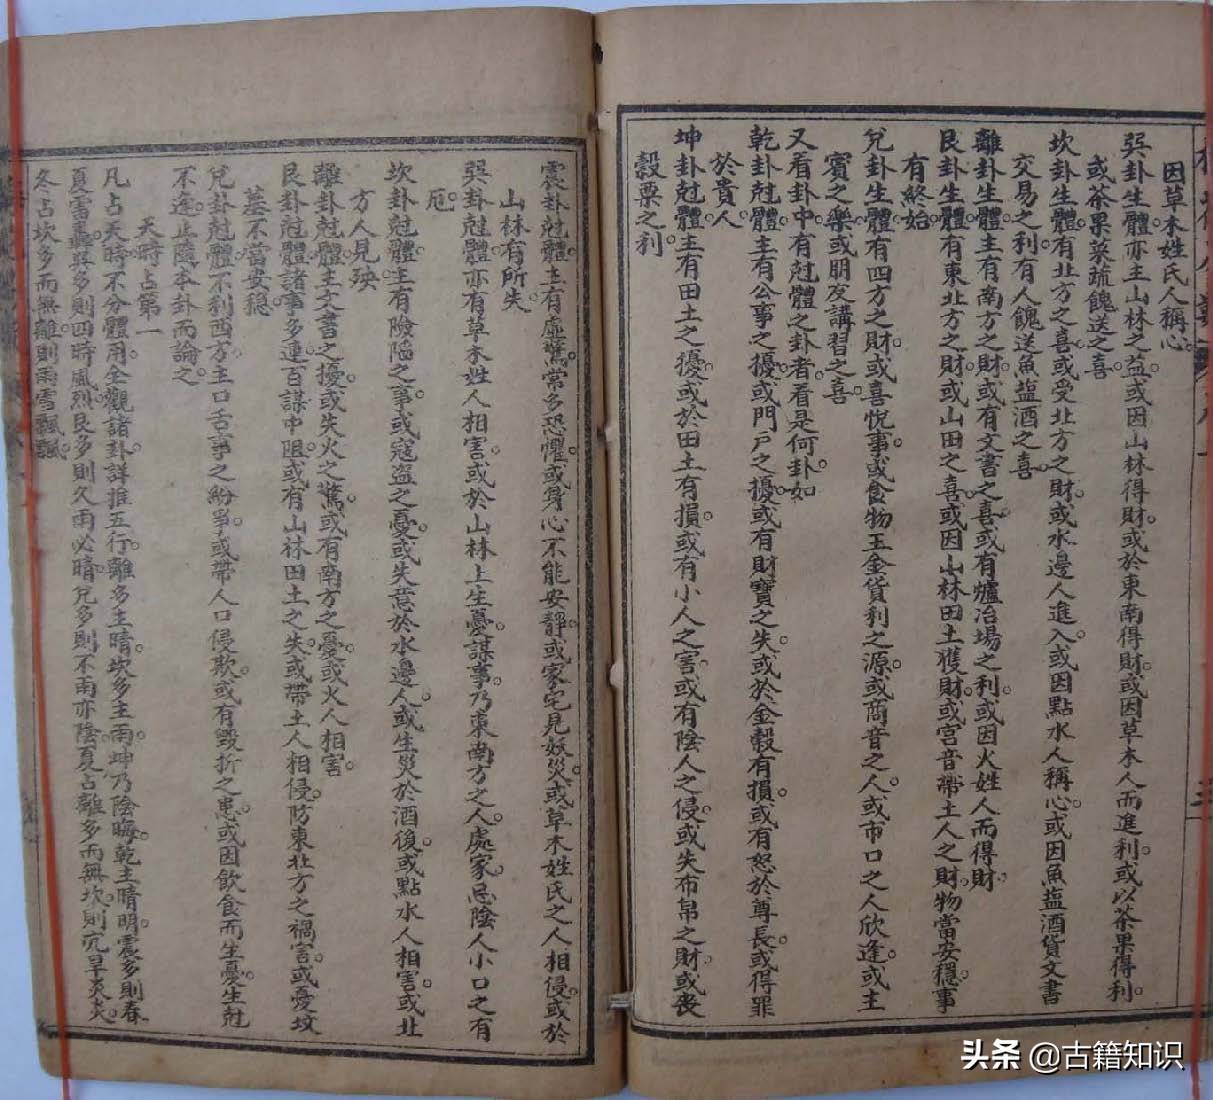 因草木姓氏人稱心。
巽卦生體。亦主山林之益。或因山林得財。或於東南得財。或因草木人而進利。或以茶果得利。
或茶果菜蔬餽送之喜。
坎卦生體。有北方之喜。或受北方之財。或水邊人進入。或因點水人稱心。或因魚塩酒貨文書
交易之利。有人餽送魚塩酒之喜。
離卦生體。主有南方之財。或有文書之喜。或有爐冶場之利。或因火姓人而得財。
艮卦生體。有東北方之財。或山田之喜。或因山林田土獲財。或宮音帶土人之財。物當安穩。事
有終始。
兌卦生體。有四方之財。或喜悅事。或食物玉金貨利之源。或商音之人。或市口之人欣逢。或主
賓之樂。或朋友講習之喜。
又看卦中有尅體之卦者。看是何卦。如
乾卦尅體。主有公事之擾。或門戶之擾。或有財寶之失。或於金穀有損。或有怒於尊長。或得罪
於貴人。
坤卦尅體。主有田土之擾。或於田土有損。或有小人之害。或有陰人之侵。或失布帛之財。或喪
穀粟之利。
震卦尅體。主有虛驚。常多恐懼。或身心不能安靜。或家宅見妖災。或草木姓氏之人相侵。或於
山林有所失。
巽卦尅體。亦有草木姓人相害。或於山林上生憂。謀事。乃東南方之人。處家忌陰人小口之有
厄。
坎卦尅體。主有險陷之事。或寇盜之憂。或失意於水邊人。或生災於酒後。或點水人相害。或北
方人見殃。
離卦尅體。主文書之擾。或失火之驚。或有南方之憂。或火人相害。
艮卦尅體。諸事多連。百謀中阻。或有山林田土之失。或帶土人相侵。防東北方之禍害。或憂坟
墓不當安穩。
兌卦尅體。不利西方。主口舌事之紛爭。或帶人口侵欺。或有毀折之患。或因飲食而生憂。生尅
不逢。止隨本卦而論之。
天時占第一
凡占天時。不分體用。全觀諸卦。詳推五行。離多主晴。坎多主雨。坤乃陰晦。乾主晴明。震多則春
夏雷轟。巽多則四時風烈。艮多則久雨必晴。兌多則不雨亦陰。夏占離多而無坎。則亢旱炎炎。
冬占坎多而無離。則雨雪飄飄。
头条 @古籍知识